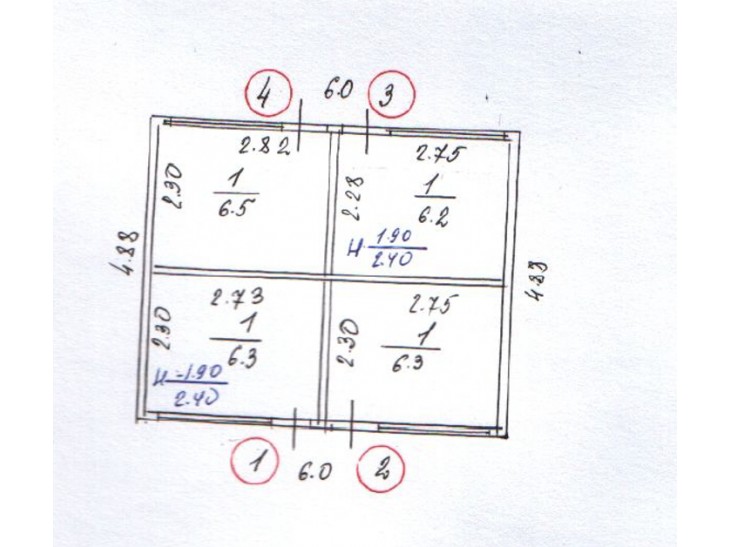 4 6.0 3
2.82 2.75
2.30 1 2.28 1
6.5 6.2
H 1.90
2.40
4.88 4.87
2.73 2.75
2.30 1 2.30 1
6.3 6.3
H-1.90
2.40
1 6.0 2